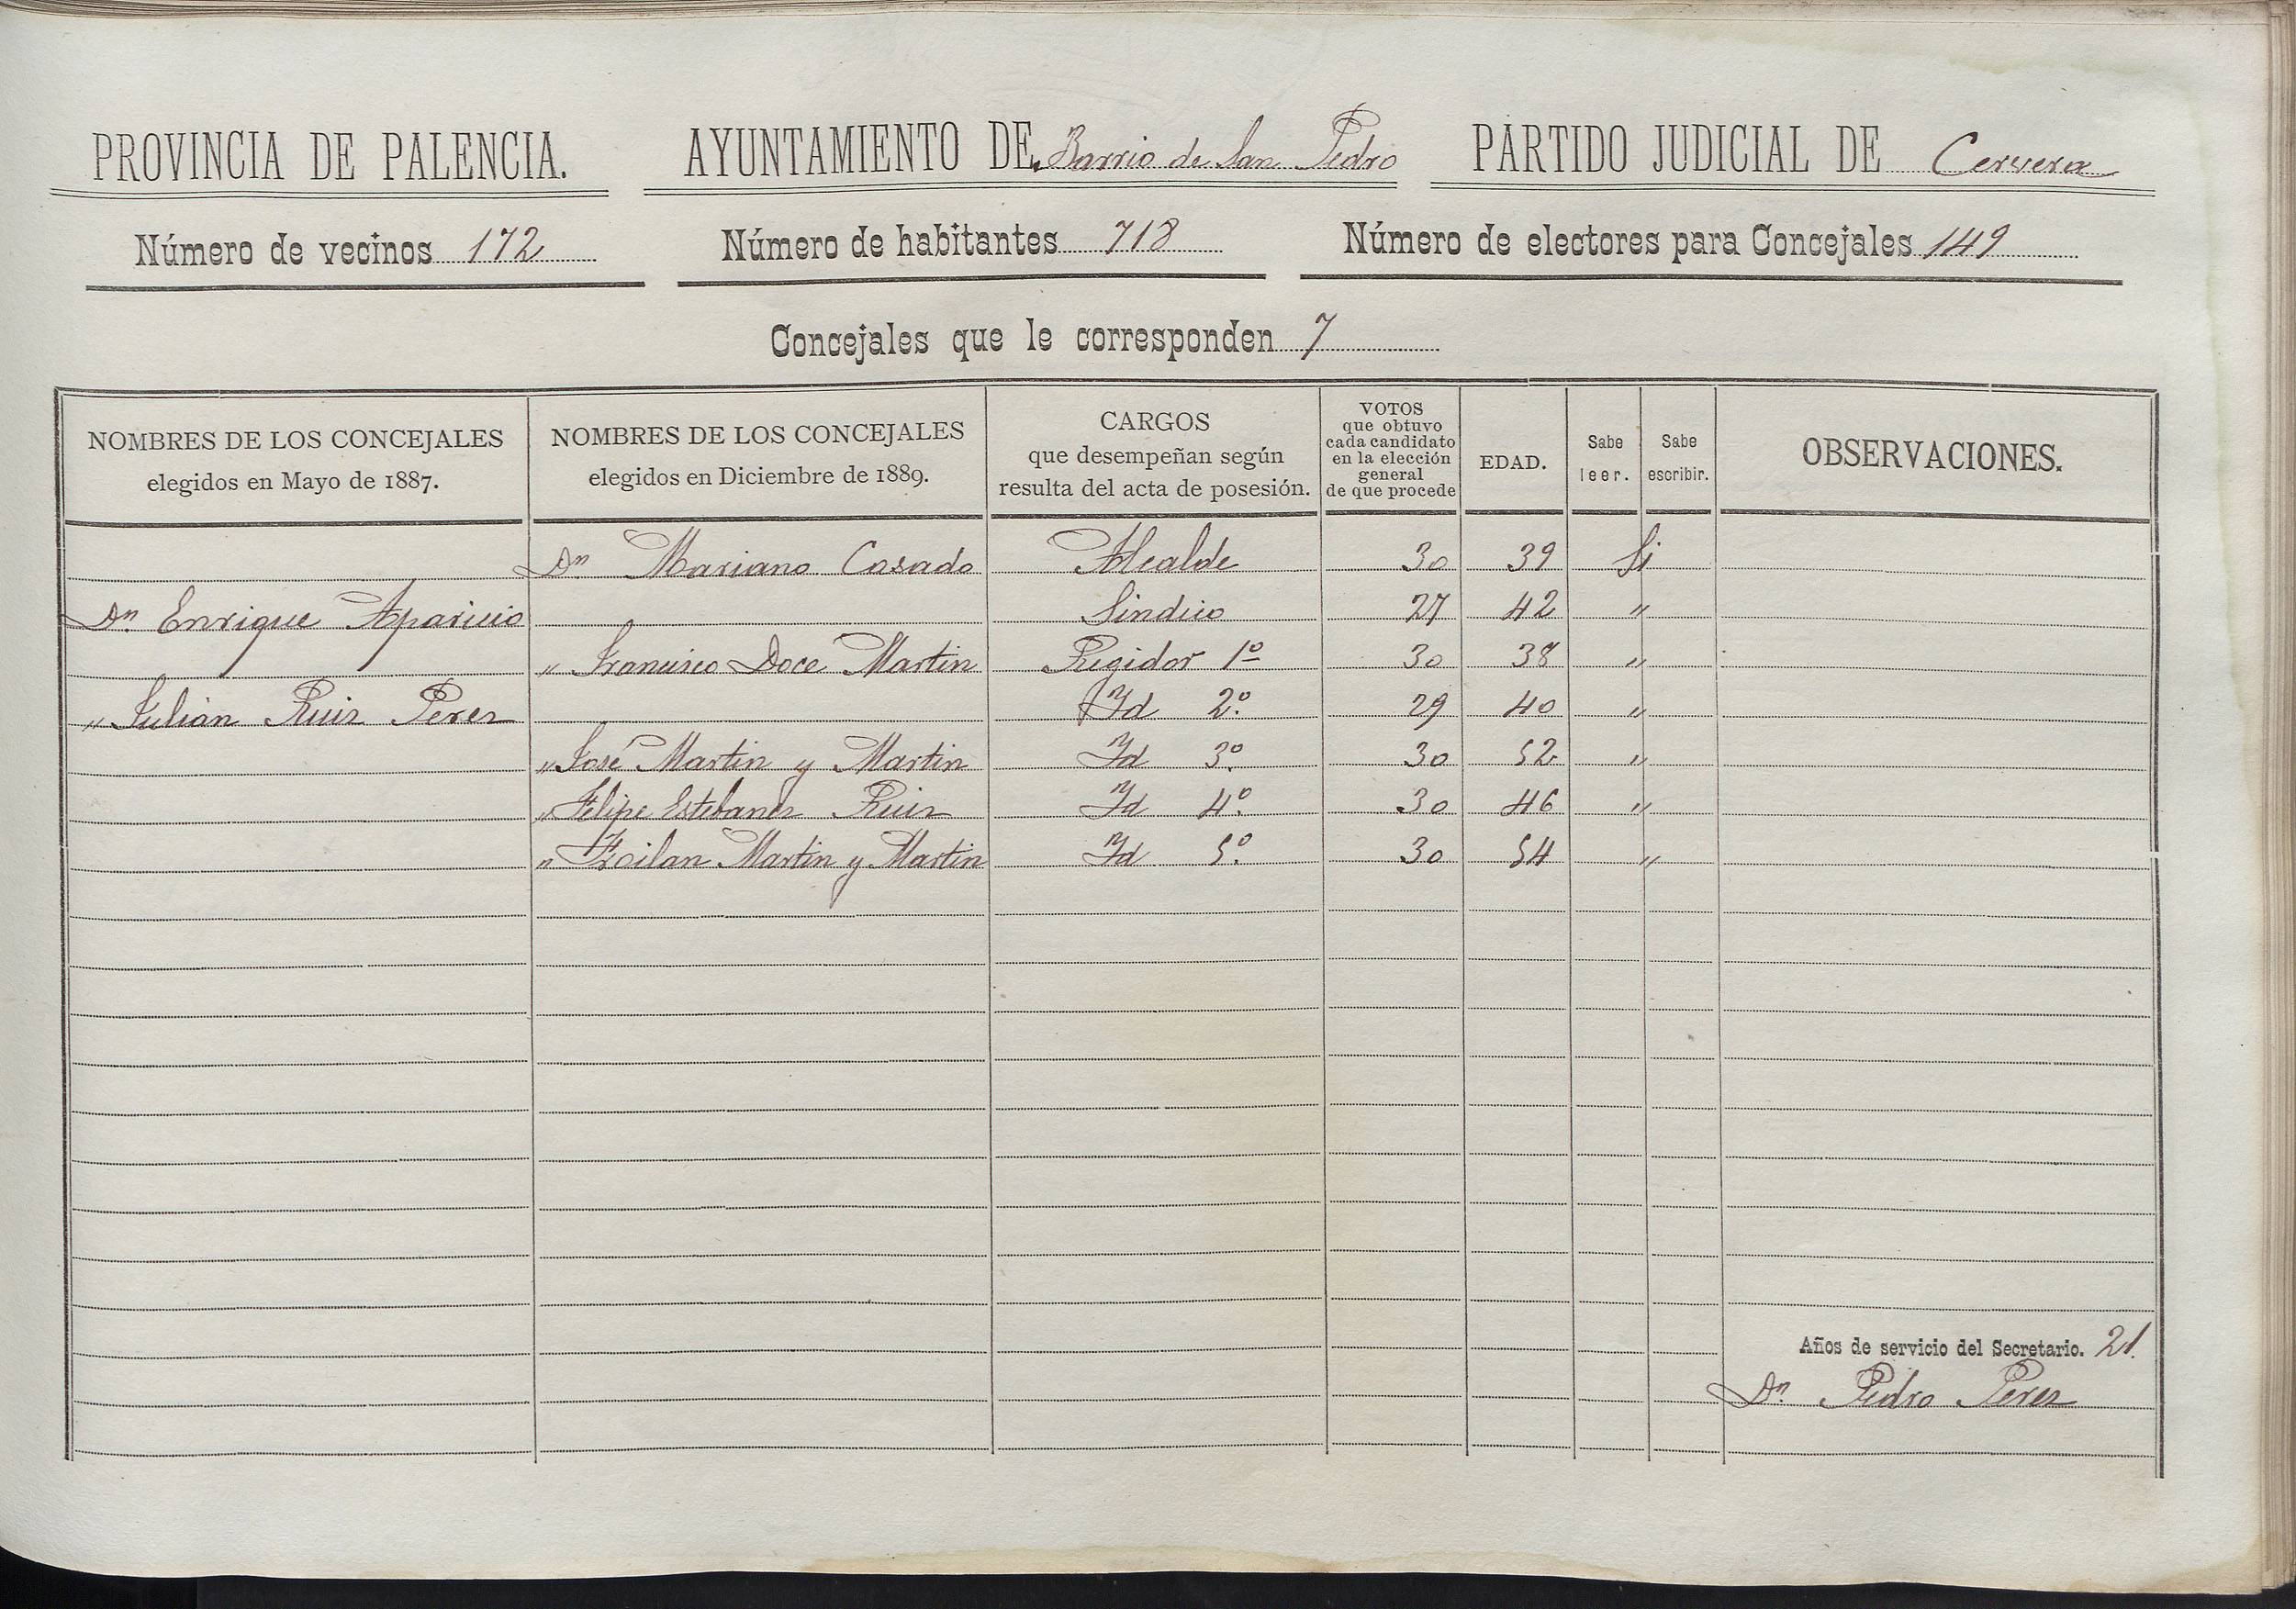 PROVINCIA DE PALENCIA. AYUNTAMIENTO DE Barrio de San Pedro PARTIDO JUDICIAL DE Cervera
Número de vecinos 172 Número de habitantes 718 Número de electores para Concejales 149
Concejales que le corresponden 7
NOMBRES DE LOS CONCEJALES
elegidos en Mayo de 1887.
NOMBRES DE LOS CONCEJALES
elegidos en Diciembre de 1889.
CARGOS
que desempeñan según
resulta del acta de posesión.
VOTOS
que obtuvo
cada candidato
en la elección
general
de que procede
EDAD.
Sabe
leer.
Sabe
escribir.
OBSERVACIONES.
Dn Mariano Casado Alcalde 30 39 Si
Dn Enrique Aparicio Sindico 27 42 "
" Francisco Doce Martin Regidor 1º 30 38 "
" Julián Ruiz Perez Id 2º. 29 40 "
" José Martin y Martin Id 3º. 30 52 "
" Felipe Estebanez Ruiz Id 4º. 30 46 "
" Froilan Martin y Martin Id 5º. 30 54 "
Años de servicio del Secretario. 21.
Dn Pedro Perez